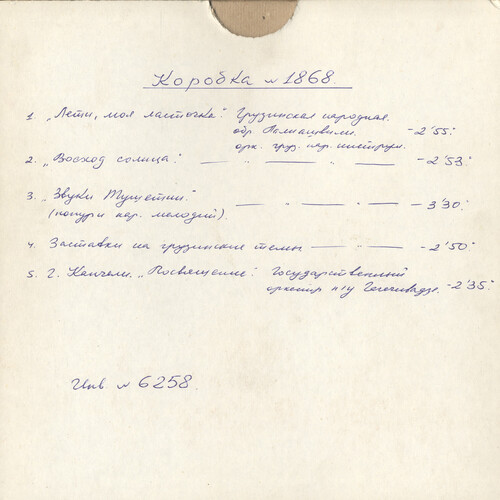 Коробка № 1868.
1. „Лети, моя ласточка". Грузинская народная.
обр. Палиашвили. - 2'55".
орк. груз. нар. инструм.
2. „Восход солнца". — " — " — - 2'53".
3. „Звуки Тушетии". — " — " — - 3'30".
(попури нар. мелодий).
4. Заставки на грузинские темы — " — - 2'50".
5. Г. Канчели. „Посвящение". Государственный
оркестр п/у Гегечкадзе. - 2'35".
Инв. № 6258.